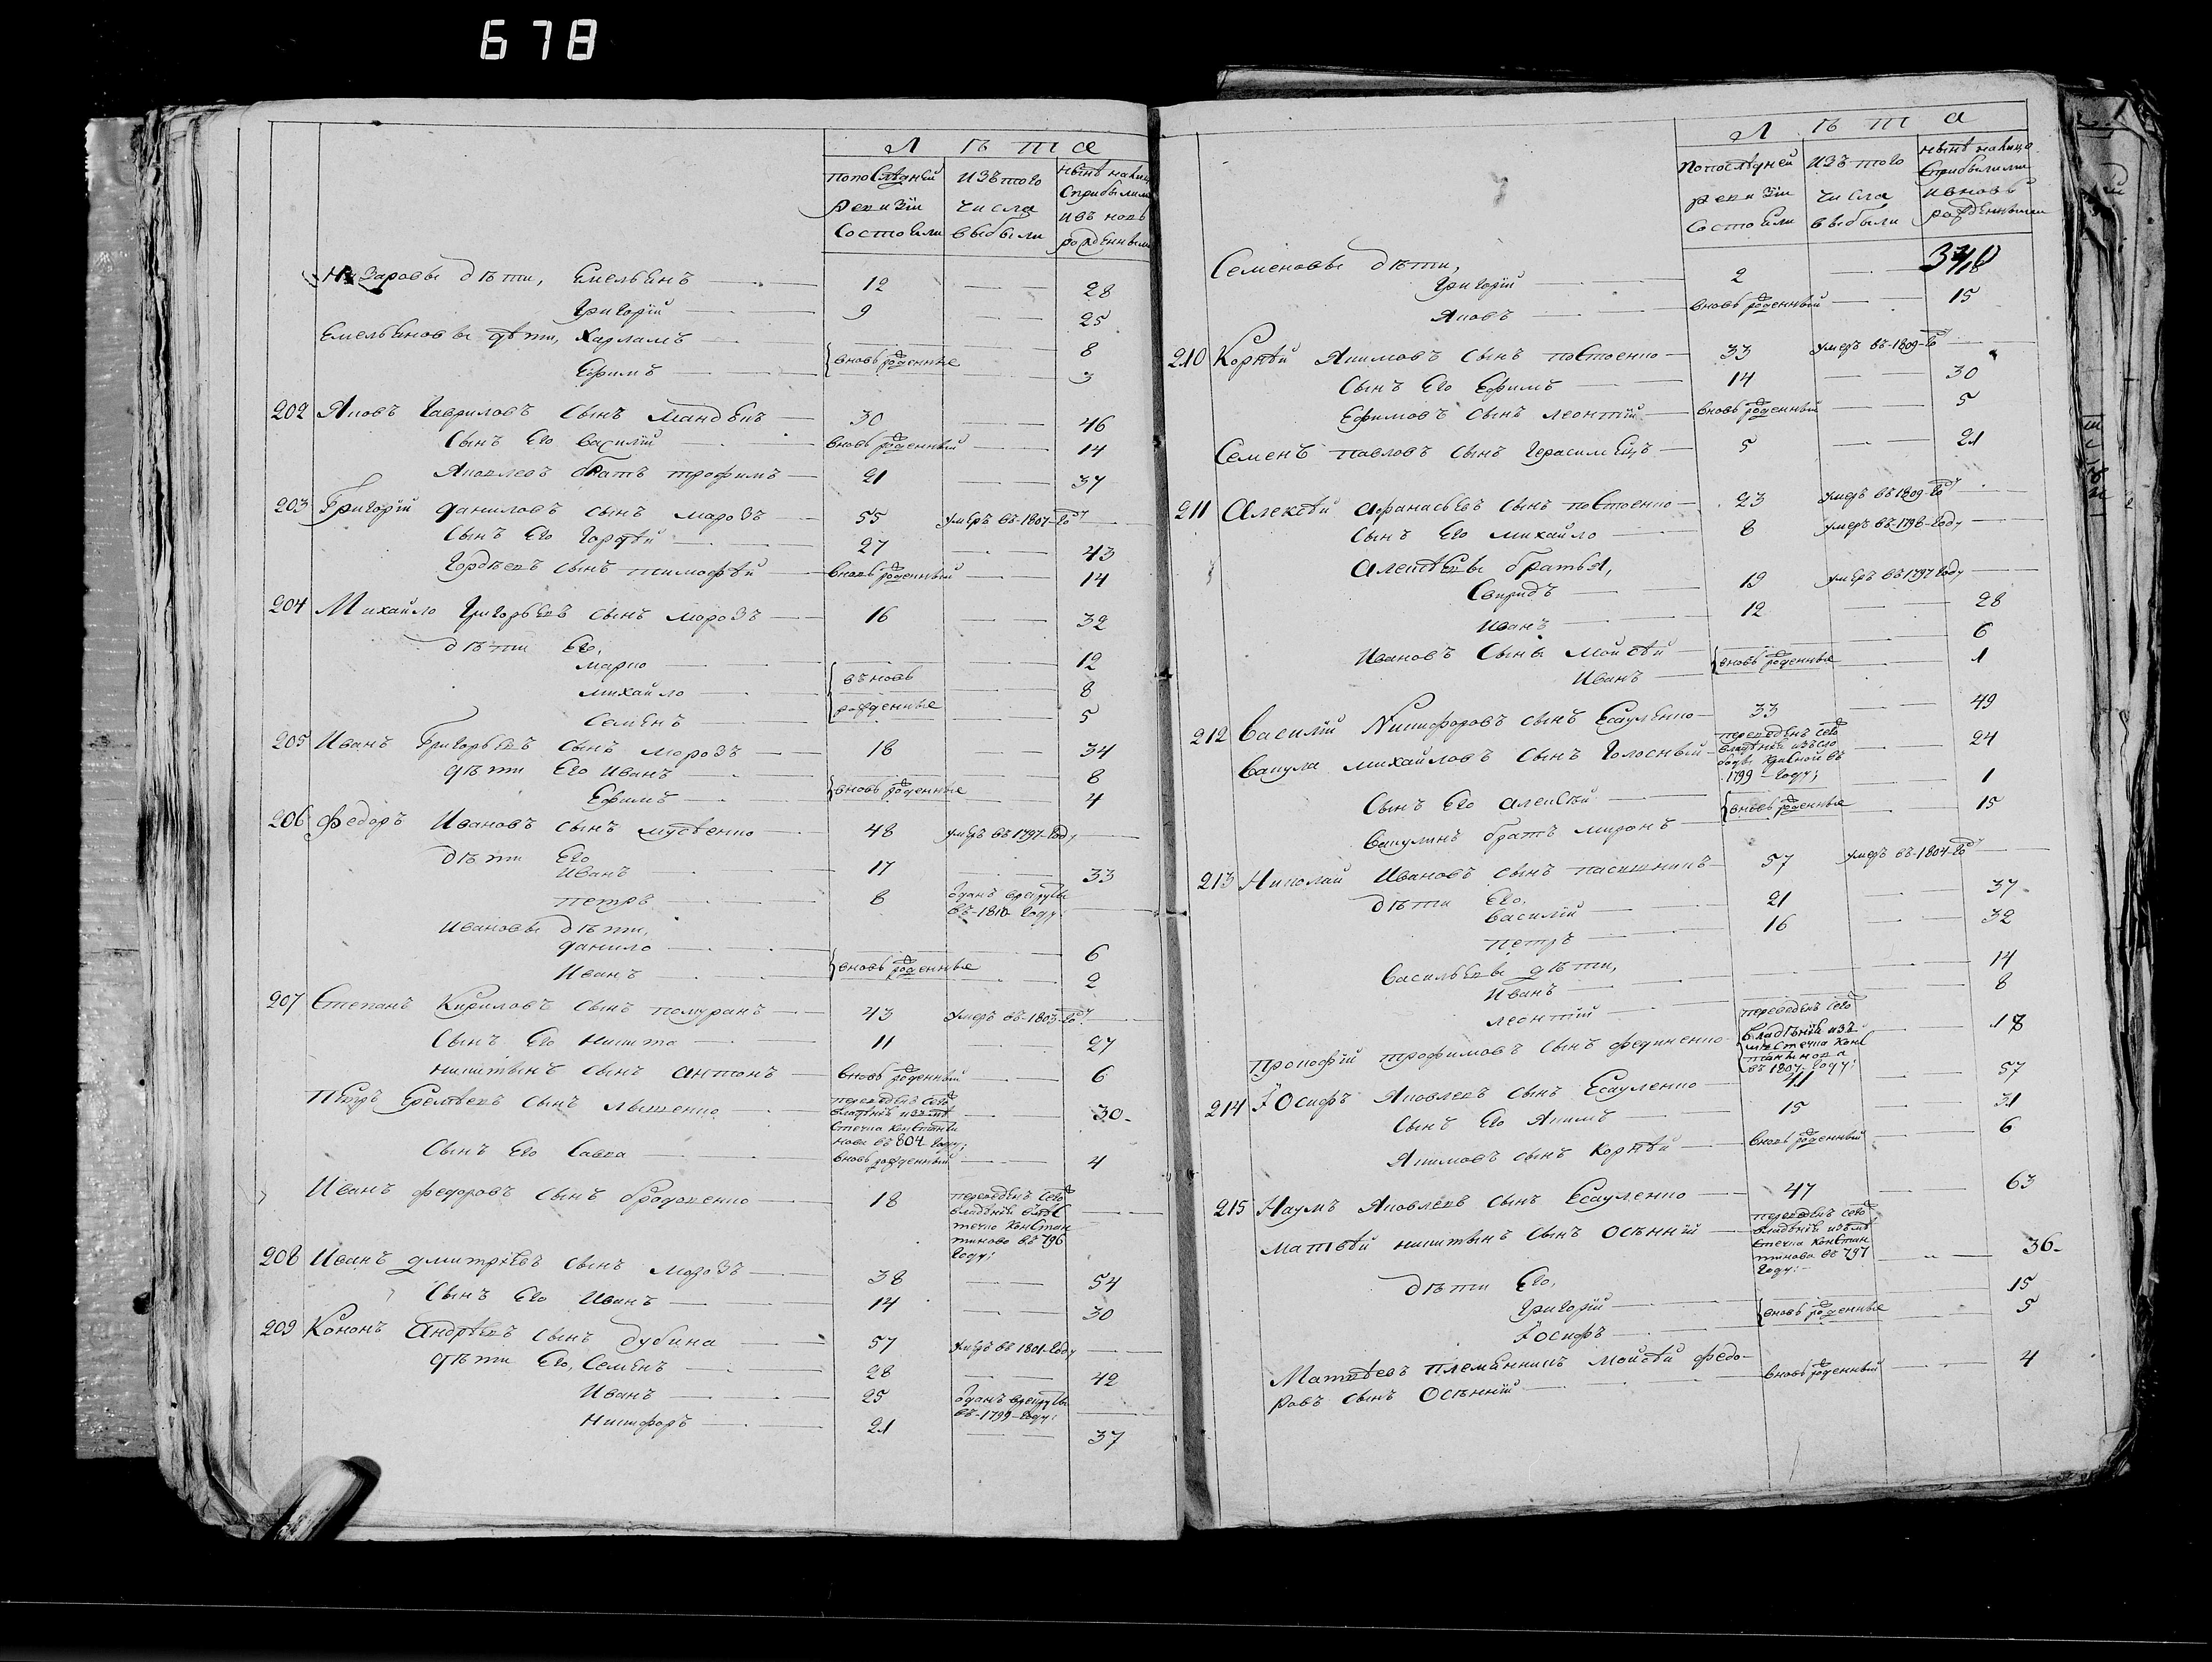 678
Лѣта
попослѣдней ревизіи состояли
изътого числа выбыли
нынѣ налицо съприбылими ивъновь рожденными
Назаровы дѣти, Емельянъ 12 28
Григорій 9 25
Емельяновы дѣти, Харламъ 8
вновь рожденные
Ефимъ 3
202 Яковъ Гавриловъ сынъ 30 46
Сынъ Его василій вновь рожденный 14
Яковлевъ братъ трофимъ 21 37
203 Григорій даниловъ сынъ морозъ 55 умеръ въ-1807-году
Сынъ Его Гордѣй 27 43
Гордѣевъ сынъ тимофѣй вновь рожденный 14
204 Михайло Григорьевъ сынъ морозъ 16 32
дѣти Его,
марко 12
въновь
михайло 8
рожденные
Семенъ 5
205 Иванъ Григорьевъ сынъ морозъ 18 34
дѣти Его Иванъ 8
вновь рожденные
Ефимъ 4
206 федоръ Ивановъ сынъ 48 умеръ въ 1797-году
дѣти Его
Иванъ 17 33
петръ 8 отданъ врекруты въ-1810 году:
Ивановы дѣти,
данило 6
вновь рожденные
Иванъ 2
207 Степанъ Кириловъ сынъ 43 умеръ въ-1803-году
Сынъ Его никита 11 27
никитинъ сынъ антонъ вновь рожденный 6
Петръ Еремѣевъ сынъ 30
переведенъ сего владѣнія изъмѣстечка константинова въ 804 году;
Сынъ Его Савка вновь рожденный 4
Иванъ федоровъ сынъ 18
переведенъ сего владѣнія вмѣстечко константиново въ 796 году;
208 Иванъ дмитріевъ сынъ морозъ 38 54
Сынъ Его Иванъ 14 30
209 Кононъ Андрѣевъ сынъ дубина 57 умеръ въ 1801-году
дѣти Его, Семенъ 28 42
Иванъ 25 отданъ врекруты въ-1799-году:
никифоръ 21 37
Лѣта
попослѣдней ревизіи состояли
изътого числа выбыли
нынѣ налицо съприбылими ивновь рожденными
Семеновы дѣти,
Григорій 2 18
Яковъ вновь рожденный 15
210 Корнѣй Якимовъ сынъ костенко 33 умеръ въ-1809-году
Сынъ Его Ефимъ 14 30
Ефимовъ сынъ леонтій вновь рожденный 5
Семенъ павловъ сынъ 5 21
211 Алексѣй афанасьевъ сынъ костенко 23 умеръ въ 1809-году
Сынъ Его михайло 8 умеръ въ-1798-году
алексѣевы братья,
Свиридъ 19 умеръ въ 1797 году
Иванъ 12 28
Ивановъ сынъ Мойсѣй 6
вновь рожденные
Иванъ 1
212 Василій Никифоровъ сынъ Есауленко 33 49
Вакула михайловъ сынъ Голосный 24
переведенъ сего владѣнія изъслободы въ 1799-году;
Сынъ Его алексѣй 1
вновь рожденные
Вакулинъ братъ миронъ 15
213 Николай Ивановъ сынъ пасешникъ 57 умеръ въ-1804-году
дѣти Его,
василій 21 37
петръ 16 32
Васильевы дѣти,
Иванъ 14
леонтій 8
прокофій трофимовъ сынъ фединенко 18
переведенъ сего владѣнія изъмѣстечка константинова въ 1807-году;
214 Іосифъ Яковлевъ сынъ Есауленко 41 57
Сынъ Его Якимъ 15 31
Якимовъ сынъ Корнѣй вновь рожденный 6
215 Наумъ Яковлевъ сынъ Есауленко 47 63
матвѣй никитинъ сынъ Осѣнній 36
переведенъ сего владѣнія изъмѣстечка константинова въ 797 году:
дѣти Его,
Григорій 15
вновь рожденные
Іосифъ 5
Матвѣевъ племянникъ мойсѣй федо-
ровъ сынъ Осѣнній вновь рожденный 4